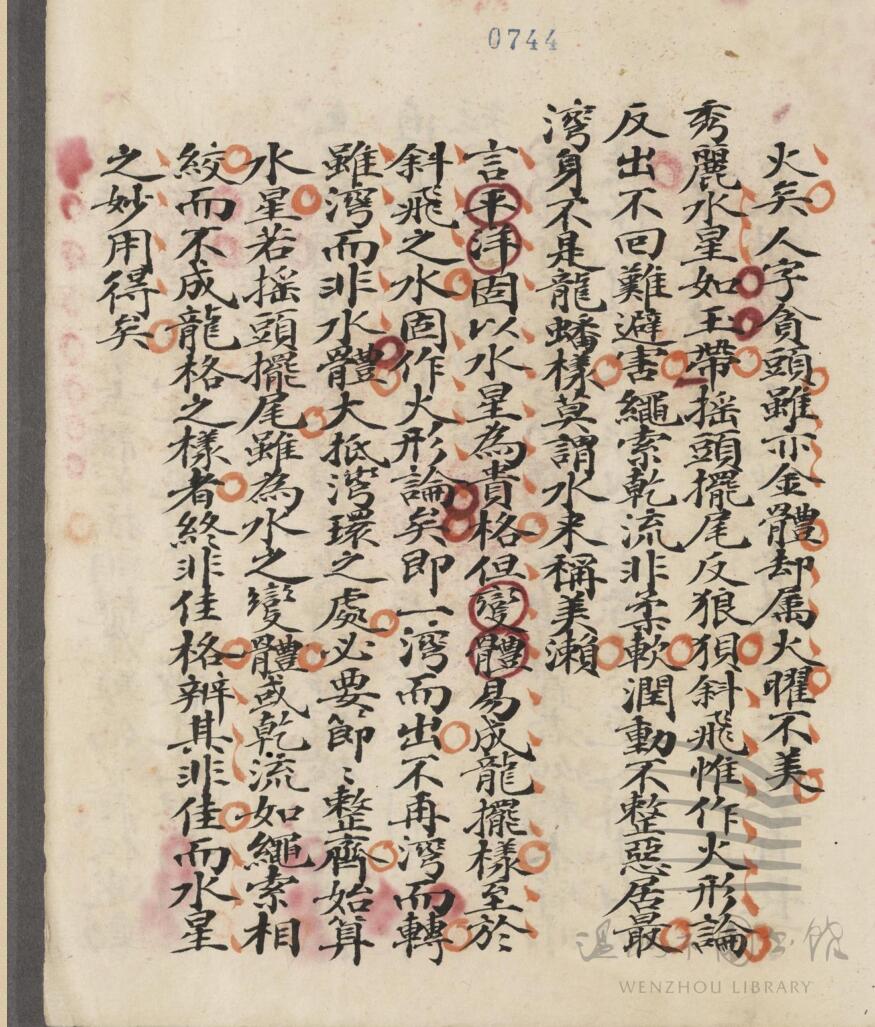 0744
火矣人字貪頭雖亦金體却属火曜不美
秀麗水星如玉帶摇頭擺尾反狼狽斜飛惟作火形論
反出不回難避害繩索乾流非柔軟潤動不整惡居最
灣身不是龍蟠樣莫謂水来稱美瀨
言平洋固以水星為貴格但變體易成龍擺樣至於
斜飛之水固作火形論矣即一灣而出不再灣而轉
雖灣而非水體大抵灣環之處必要節〻整齊始算
水星若摇頭擺尾雖為水之變體或乾流如繩索相
絞而不成龍格之樣者終非佳格辨其非佳而水星
之妙用得矣
溫州市圖书館
WENZHOU LIBRARY